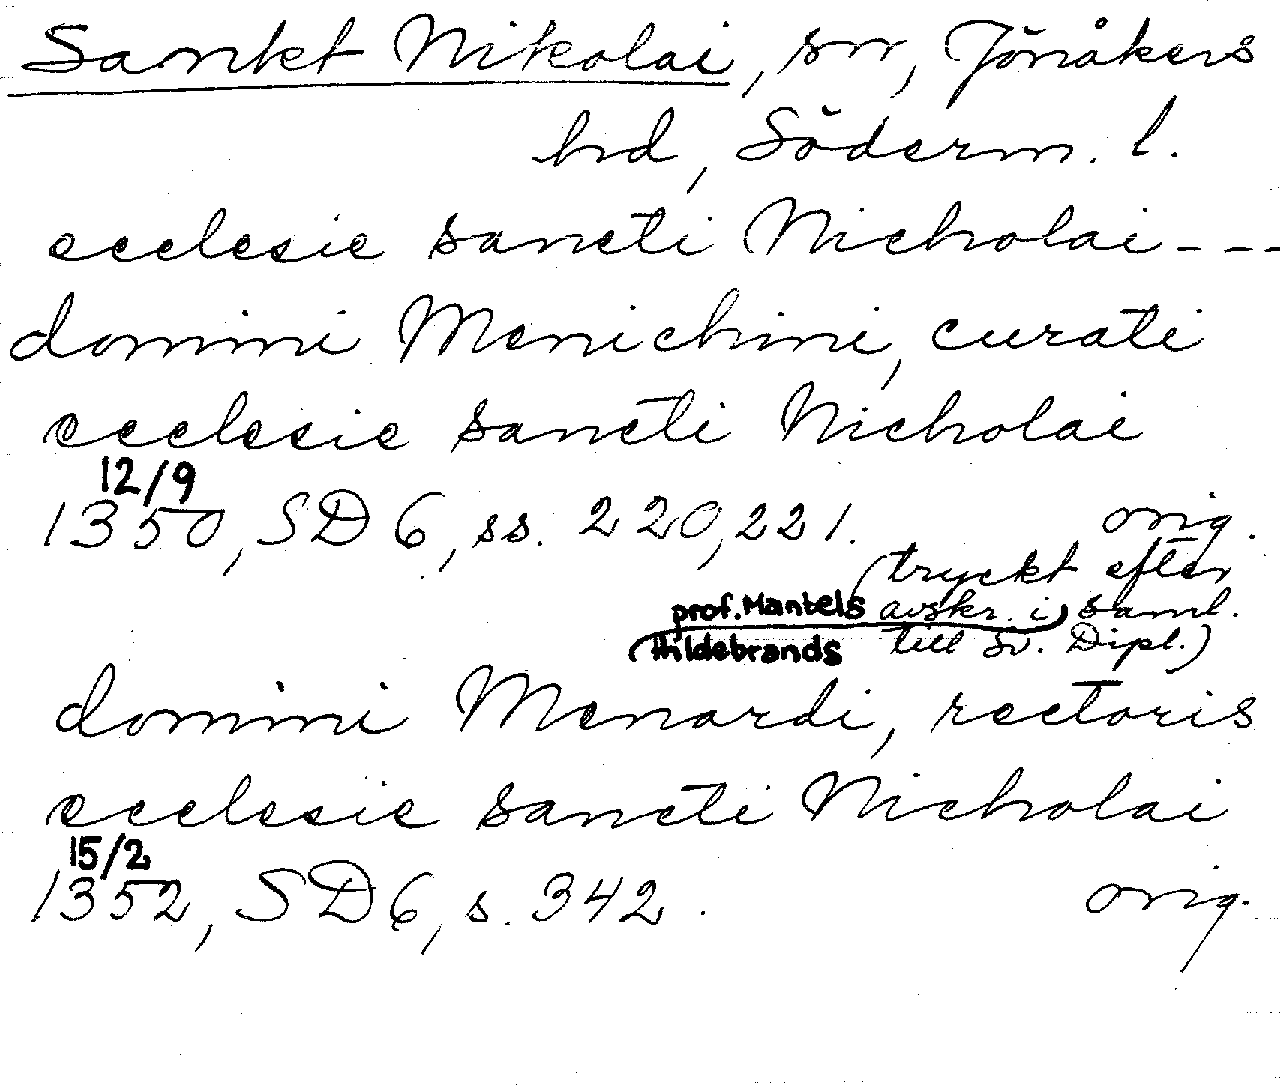 Sankt Nikolai, sn, Jönåkers
hd, Söderm. l.
ecclesie sancti Nicholai - - -
domini Menichini, curati
ecclesie sancti Nicholai
12/9
1350, SD 6, ss. 220, 221. orig.
(tryckt efter
prof. Mantels avskr. i) saml.
(Hildebrands till Sv. Dipl.)
domini Menardi, rectoris
ecclesie sancti Nicholai
15/2
1352, SD 6, s. 342. orig.